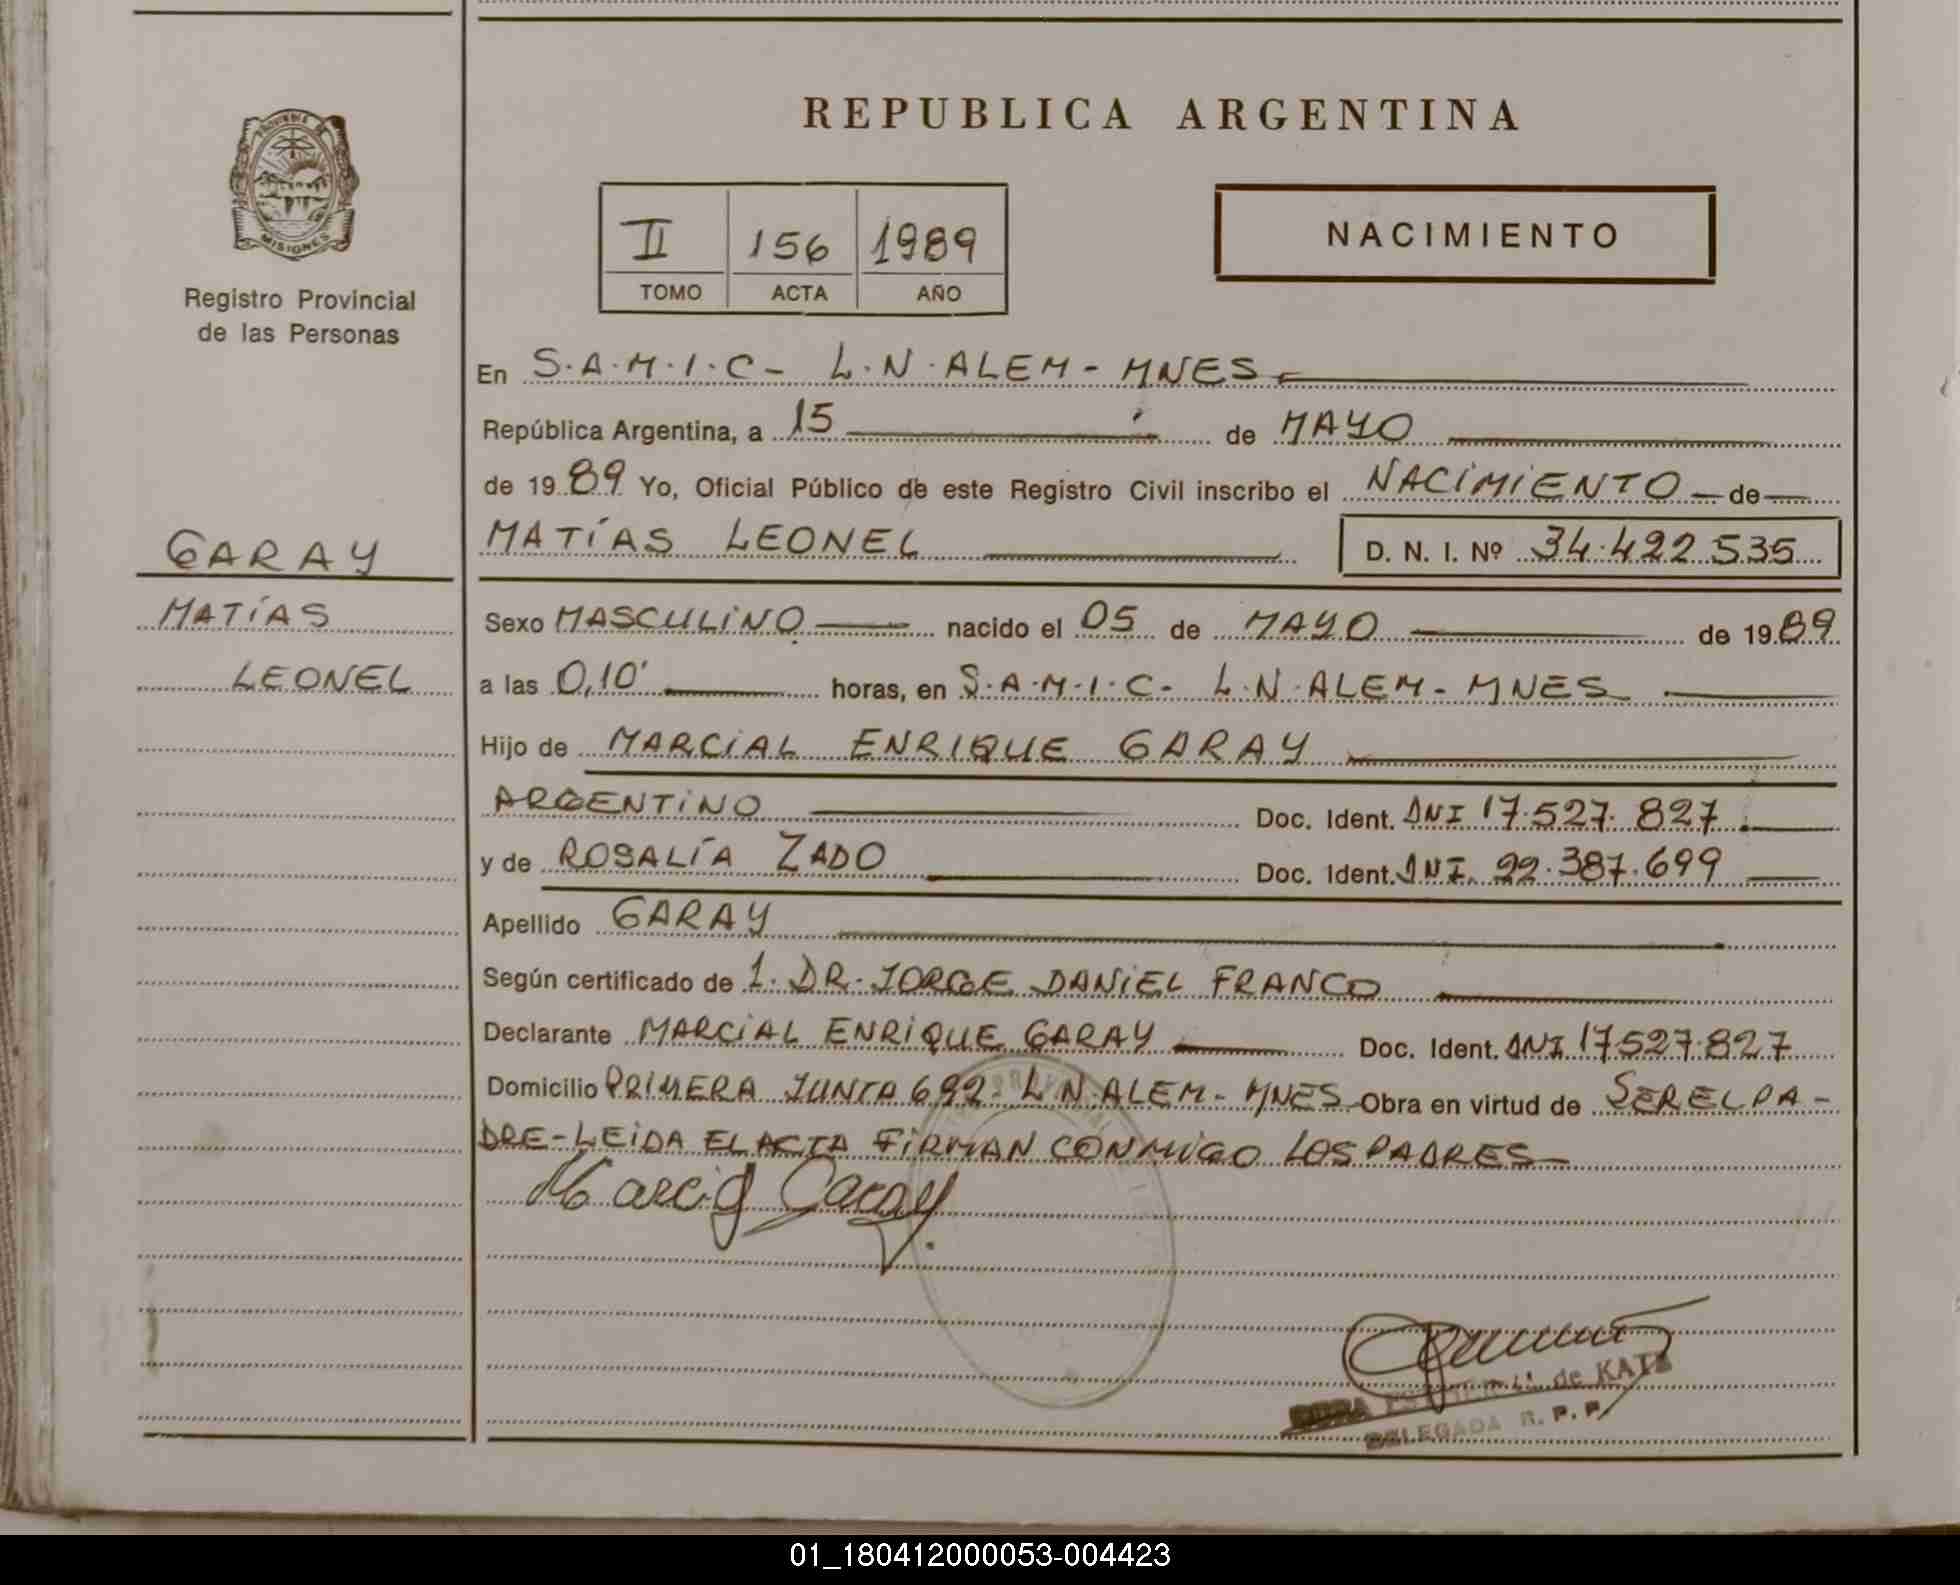 REPUBLICA ARGENTINA
PROVINCIA DE
MISIONES
Registro Provincial
de las Personas
II 156 1989
TOMO ACTA AÑO
NACIMIENTO
En S.A.M.I.C- L.N.ALEM- MNES
República Argentina, a 15 de MAYO
de 1989 Yo, Oficial Público de este Registro Civil inscribo el NACIMIENTO de
MATÍAS LEONEL D. N. I. Nº 34.422.535
GARAY
MATÍAS
LEONEL
Sexo MASCULINO nacido el 05 de MAYO de 1989
a las 0,10' horas, en S.A.M.I.C- L.N.ALEM- MNES
Hijo de MARCIAL ENRIQUE GARAY
ARGENTINO Doc. Ident. DNI 17.527.827
y de ROSALÍA ZADO Doc. Ident. DNI. 22.387.699
Apellido GARAY
Según certificado de 1. DR. JORGE DANIEL FRANCO
Declarante MARCIAL ENRIQUE GARAY Doc. Ident. DNI 17527.827
Domicilio PRIMERA JUNTA 692- L.N.ALEM- MNES Obra en virtud de SER EL PA-
DRE-LEIDA EL ACTA FIRMAN CONMIGO LOS PADRES
Marcial Garay
de KATZ
DELEGADA R. P. P.
01_180412000053-004423